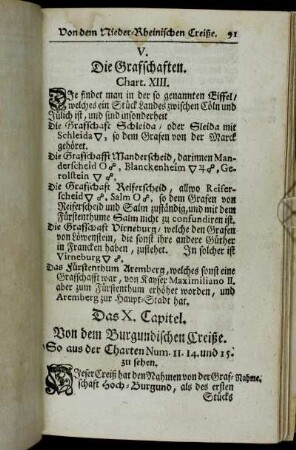 Von dem Nieder-Rheinischen Creiße. 91
V.
Die Grafschaften.
Chart. XIII.
Die findet man in der so genannten Eiffel/
welches ein Stück Landes zwischen Cöln und
Jülich ist, und sind insonderheit
Die Grafschaft Schleida/ oder Sleida mit
Schleida ▽, so dem Grafen von der Marck
gehöret.
Die Grafschafft Manderscheid, darinnen Man-
derscheid O, Blanckenheim ▽, Ge-
rolstein ▽
Die Grafschaft Reiferscheid, allwo Reifer-
scheid ▽. Salm O, so dem Grafen von
Reiferscheid und Salm zuständig, und mit dem
Fürstenthume Salm nicht zu confundiren ist.
Die Grafschaft Virneburg/ welche den Grafen
von Löwenstein, die sonst ihre andere Güther
in Francken haben, zustehet. In solcher ist
Virneburg ▽
Das Fürstenthum Aremberg, welches sonst eine
Grafschafft war, von Kayser Maximiliano II.
aber zum Fürstenthum erhöhet worden, und
Aremberg zur Haupt-Stadt hat.
Das X. Capitel.
Von dem Burgundischen Creiße.
So aus der Charten Num. 11. 14. und 15.
zu sehen.
Dieser Creiß hat den Nahmen von der Graf- Nahme.
schaft Hoch-Burgund, als des ersten
Stücks